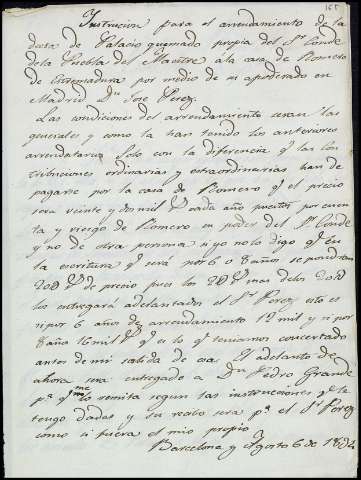 165
Instruccion para el arrendamiento de la
dicta de Palacio quemado propia del Sr Conde
de la Puebla del Maestre a la casa de Romero
de Extremadura por medio de su apoderado en
Madrid Dn Jose Perez.
Las condiciones del arrendamiento seran las
generales y como la han tenido los anteriores
arrendatarios. Solo con la diferencia q.e las con
tribuciones ordinarias y extraordinarias han de
pagarse por la casa de Romero q.e el precio
sera veinte y dos mil cada año puestos por cuen
ta y riesgo de Romero en poder del Sr Conde
y no de otra persona si yo no lo digo q.e en
la escritura q.e será por 6 o 8 años se pondran
20 de precio pues los 2 mas de los 20
los entregará adelantados el Sr Perez esto es
si por 6 años de arrendamiento 12 mil y si por
8 años 16 mil q.e es lo q.e teniamos concertado
antes de mi salida de esa. El adelanto de
ahora sera entregado a Dn Pedro Grande
p.a q.e me lo remita segun las instrucciones q.e le
tengo dadas y su recibo sera p.a el Sr Perez
como si fuera el mio propio
Barcelona y Agosto 6 de 1834